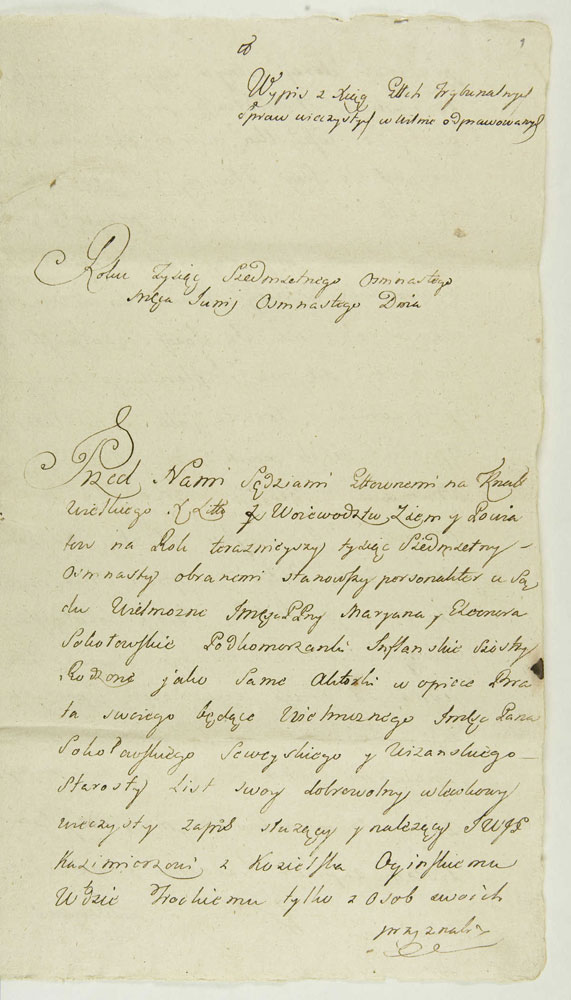 1
Wypis z Xiąg Głłch Trybunalnych
Spraw wieczystych w Wilnie odprawowanych
Roku Tysiąc Siedmsetnego Osmnastego
msca Junij Osmnastego Dnia
Przed Nami Sędziami Głłownemi na Trbll
Wielkiego X Litto z Woiewodztw, Ziem y Powia
tow na Rok teraznieyszy tysiąc Siedmsetny
Osmnasty obranemi stanowszy personaliter u Są
du Wielmozne Imsc PPny Maryana y Eleonora
Sokołowskie Podkomorzanki Inflanskie Siostry
Rodzone jako same Aktorki w opiece Bra
ta swoiego będące Wielmoznego Imsc Pana
Sokołowskiego Seweyskiego y Wizanskiego
Starosty List swoy dobrowolny wlewkowy
wieczysty zapis służący y nalezący JWJP
Kazimierzowi z Kozielska Oginskiemu
Wdzie Trockiemu tylko z Osob swoich
przyznali